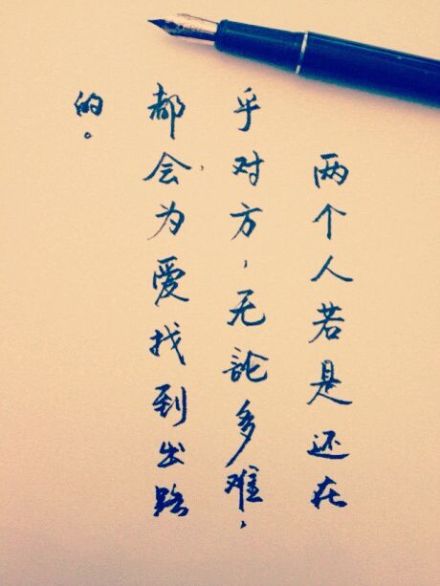 两个人若是还在
乎对方，无論多难，
都会为愛找到出路
的。